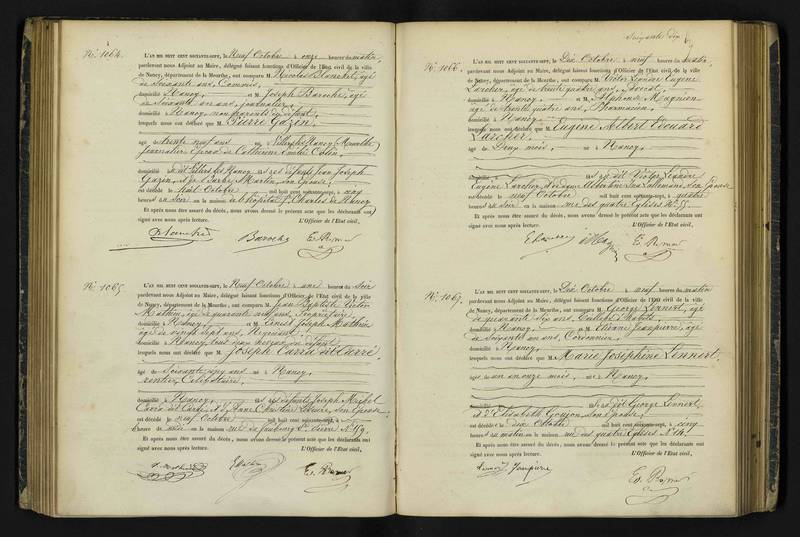 N.° 1064.
L'AN MIL HUIT CENT SOIXANTE-SEPT, le Neuf Octobre à onze heures du matin,
pardevant nous Adjoint au Maire, délégué faisant fonctions d'Officier de l'Etat civil de la ville
de Nancy, département de la Meurthe, ont comparu M. Nicolas Blanchet, âgé
de soixante ans, Commis,
domicilié à Nancy, et M. Joseph Baroche, âgé
de soixante ans, journalier,
domicilié à Nancy, non parents du défunt,
lesquels nous ont déclaré que M. Pierre Gazin,
âgé de trente neuf ans né à Villers les Nancy, Meurthe,
journalier, époux de Catherine Colin,
domicilié à dit Villers les Nancy, et des défunts Jean Joseph
Gazin, et de Barbe Martin, son épouse,
est décédé le huit Octobre mil huit cent soixante-sept, à cinq
heures du soir en la maison de l'hôpital St Charles de Nancy
Et après nous être assuré du décès, nous avons dressé le présent acte que les déclarants ont
signé avec nous après lecture. L'Officier de l'Etat civil,
Blanchet Baroche
N.° 1065
L'AN MIL HUIT CENT SOIXANTE-SEPT, le Neuf Octobre à une heures du soir
pardevant nous Adjoint au Maire, délégué faisant fonctions d'Officier de l'Etat civil de la ville
de Nancy, département de la Meurthe, ont comparu M. Jean Baptiste Victor
Mathieu, âgé de quarante neuf ans, Propriétaire,
domicilié à Nancy, et M. Ernest Joseph Mathieu
âgé de vingt sept ans, Négociant,
domicilié à Nancy, tous deux neveux du défunt,
lesquels nous ont déclaré que M. Joseph Carra dit Carré,
âgé de Soixante ans né à Nancy,
rentier, Célibataire,
domicilié à Nancy, et des défunts Joseph Michel
Carra dit Carré, et de Anne Christine son épouse,
est décédé le neuf Octobre mil huit cent soixante-sept, à
heures du en la maison rue du faubourg St Pierre N° 59.
Et après nous être assuré du décès, nous avons dressé le présent acte que les déclarants ont
signé avec nous après lecture. L'Officier de l'Etat civil,
Soixante dix
N.° 1066.
L'AN MIL HUIT CENT SOIXANTE-SEPT, le Dix Octobre à neuf heures du matin,
pardevant nous Adjoint au Maire, délégué faisant fonctions d'Officier de l'Etat civil de la ville
de Nancy, département de la Meurthe, ont comparu M. Victor Léandre Eugène
Larcher, âgé de trente quatre ans, Avocat,
domicilié à Nancy, et M. Alphonse Magnien
âgé de trente quatre ans, Pharmacien,
domicilié à Nancy,
lesquels nous ont déclaré que M. Eugène Albert Edouard
Larcher,
âgé de Deux mois, né à Nancy,
domicilié à fils du dit Victor Léandre
Eugène Larcher, et de dame Lallemand, son épouse
est décédé le neuf Octobre mil huit cent soixante-sept, à quatre
heures du soir en la maison rue des quatre Eglises N°
Et après nous être assuré du décès, nous avons dressé le présent acte que les déclarants ont
signé avec nous après lecture. L'Officier de l'Etat civil,
N.° 1067.
L'AN MIL HUIT CENT SOIXANTE-SEPT, le Dix Octobre à neuf heures du matin
pardevant nous Adjoint au Maire, délégué faisant fonctions d'Officier de l'Etat civil de la ville
de Nancy, département de la Meurthe, ont comparu M. George Lennert, âgé
de quarante six ans, Tailleur d'habits,
domicilié à Nancy, et M. Etienne Jeanpierre, âgé
de soixante un ans, Cordonnier,
domicilié à Nancy,
lesquels nous ont déclaré que M. Marie Joséphine Lennert,
âgée de un an onze mois, née à Nancy,
domicilié à fille du dit George Lennert
et d'Elisabeth Goujon, son épouse,
est décédée le dix Octobre mil huit cent soixante-sept, à cinq
heures du matin en la maison rue des quatre Eglises N° 14,
Et après nous être assuré du décès, nous avons dressé le présent acte que les déclarants ont
signé avec nous après lecture. L'Officier de l'Etat civil,
Lennert Jeanpierre